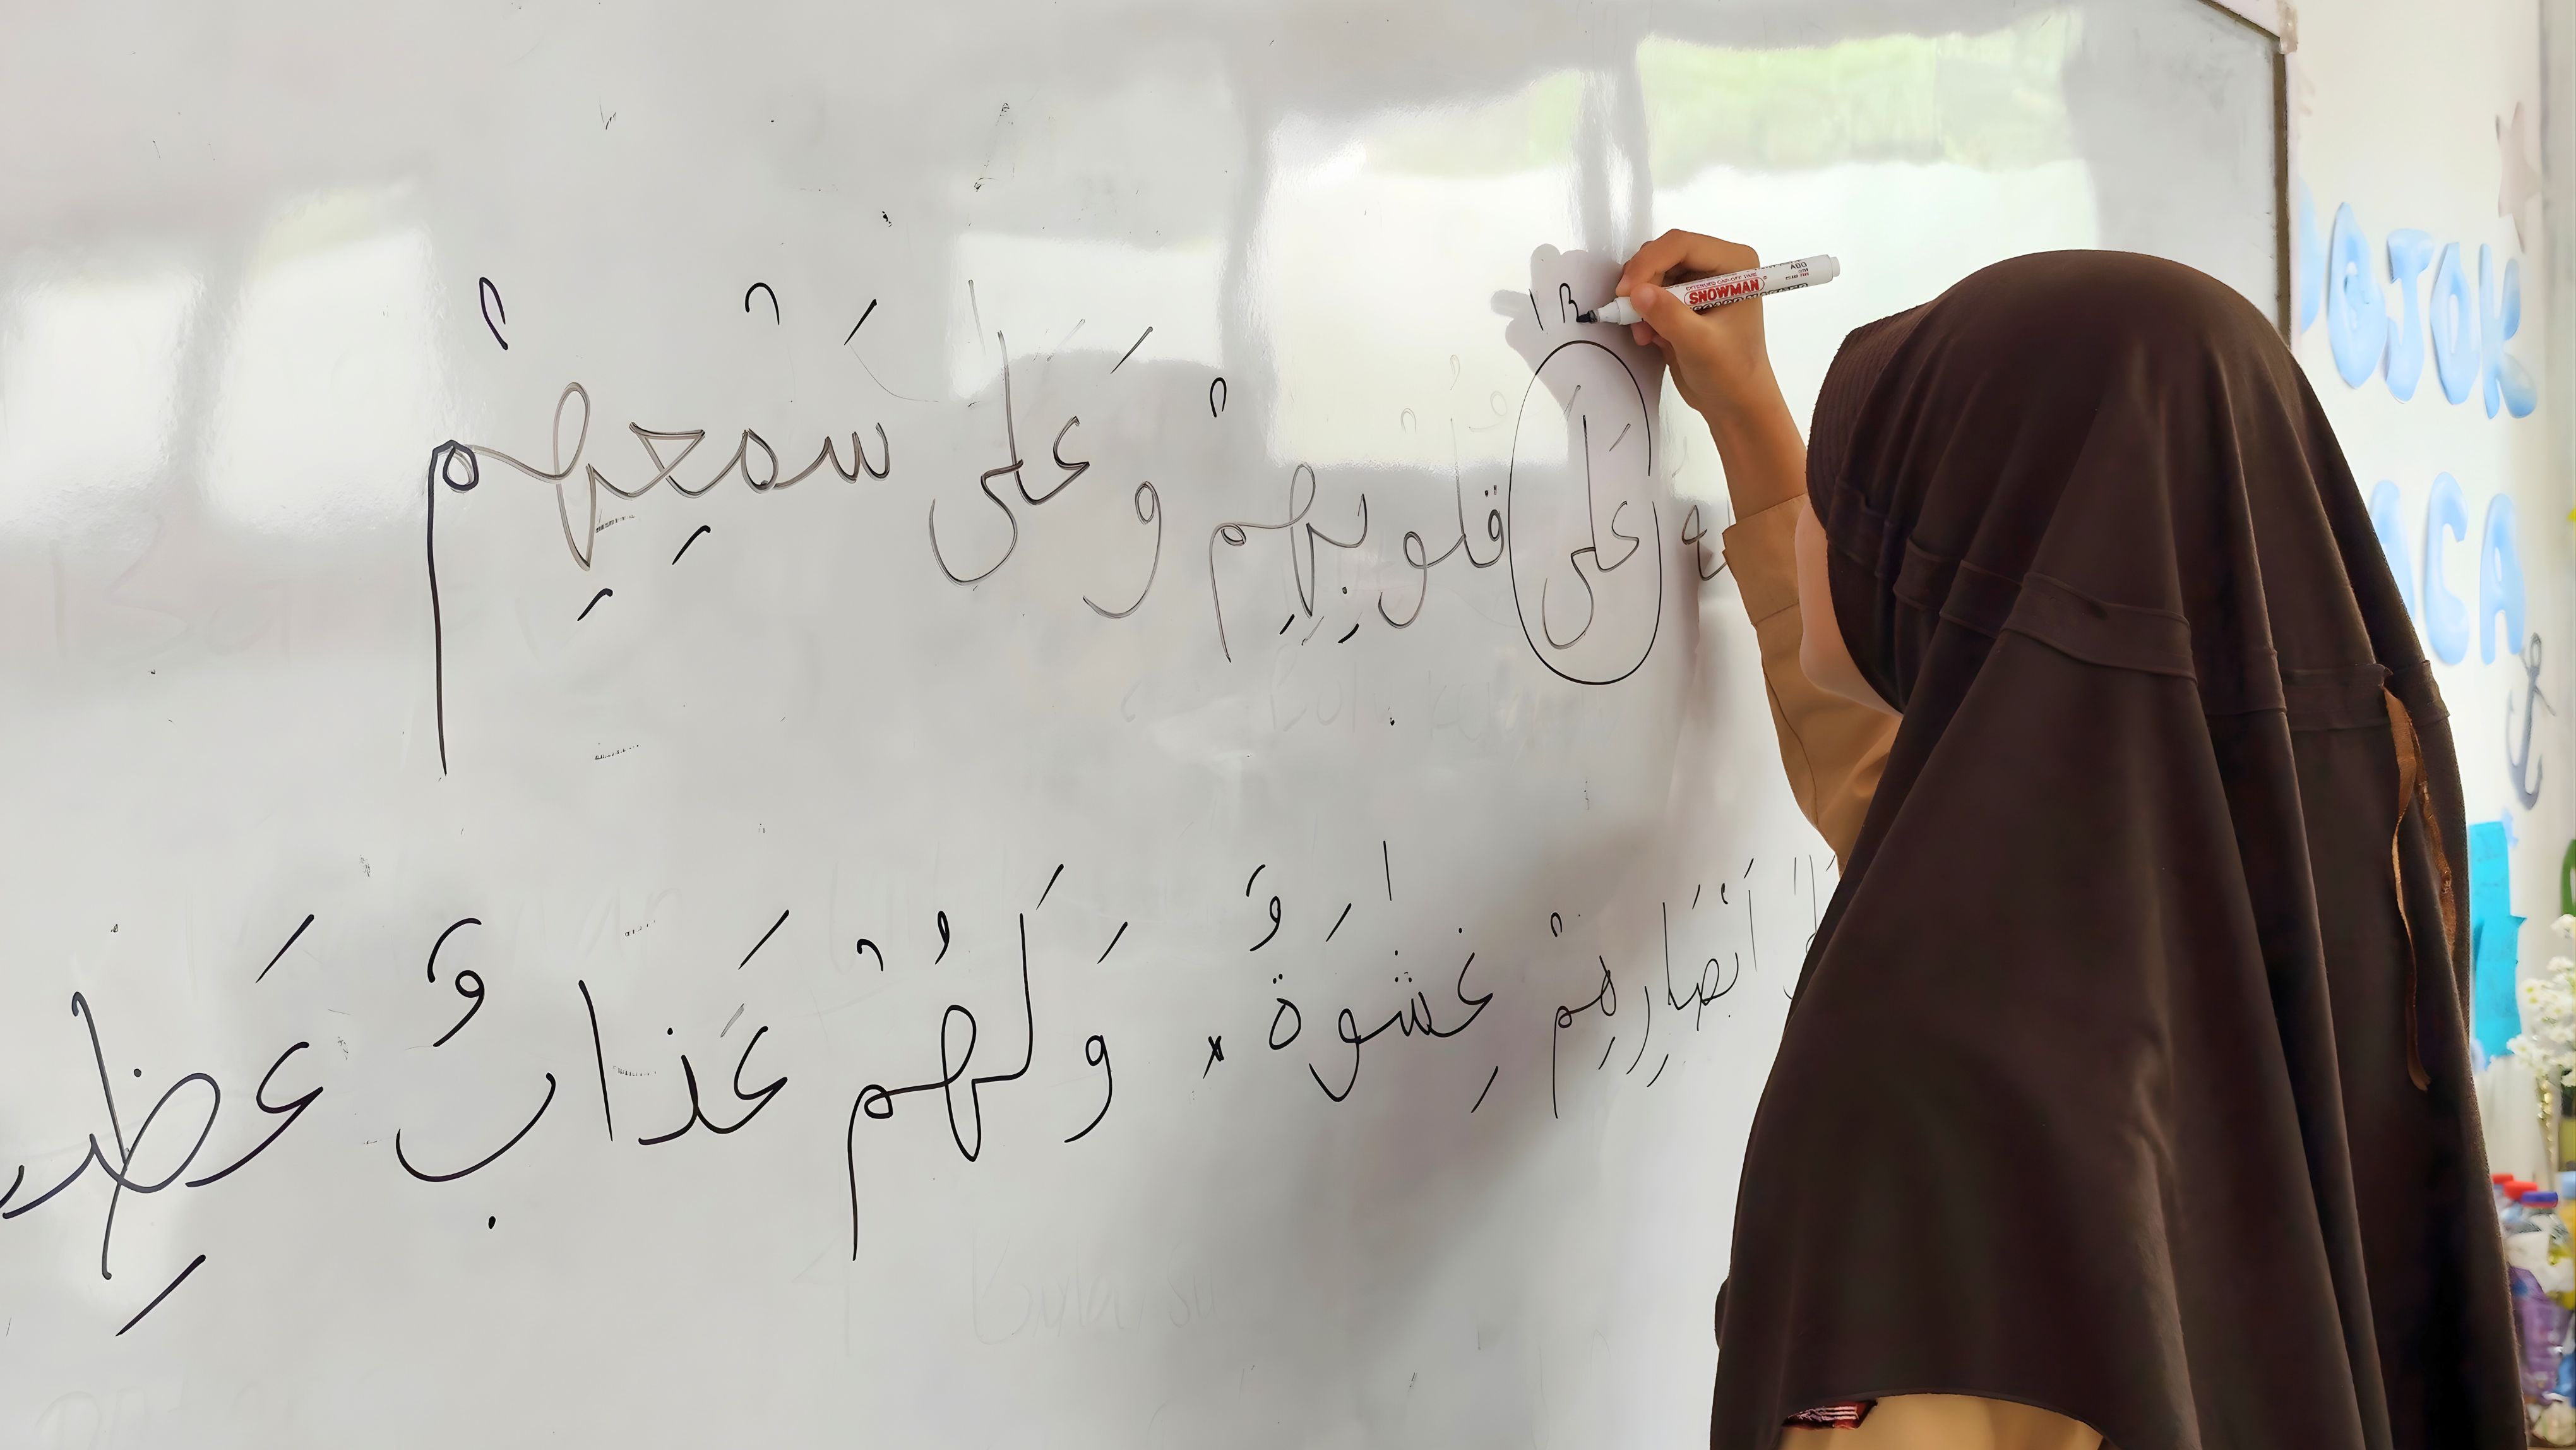 عَلَى قلوبِهِمْ وَعَلى سَمْعِهِمْ
أَبْصَارِهِمْ غِشَٰوَةٌ وَلَهُمْ عَذَابٌ
SNOWMAN
POJOK
BACA